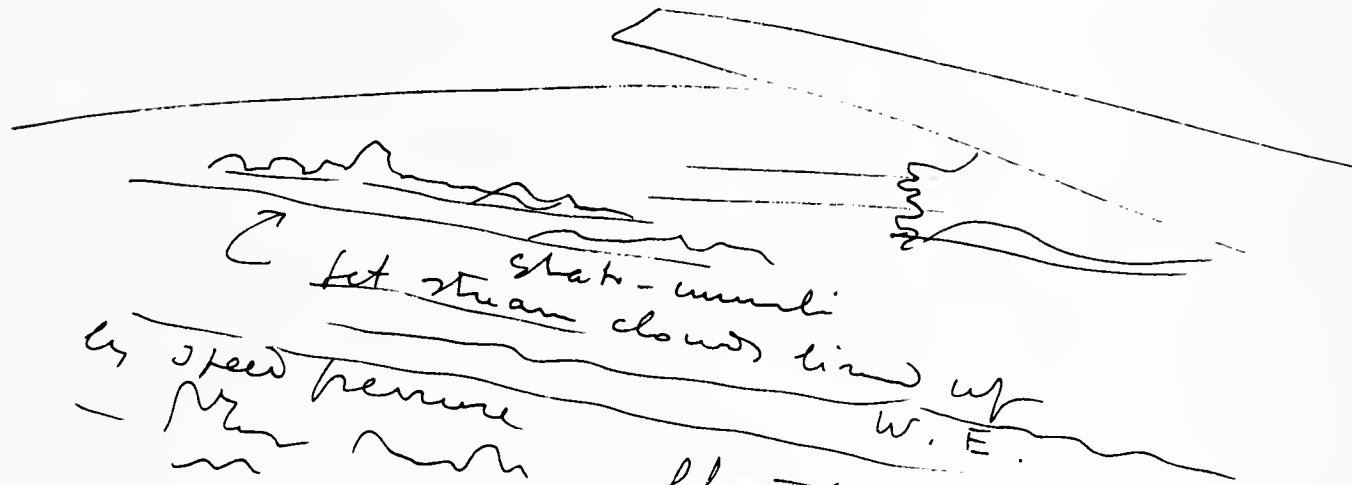 strato-cumuli
Jet stream clouds lined up
by speed pressure W. E.